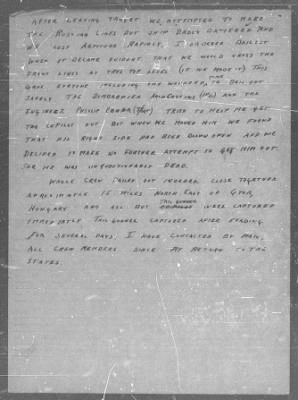 AFTER LEAVING TARGET WE ATTEMPTED TO MAKE
THE RUSSIAN LINES BUT SHIP BADLY BATTERED AND
WE LOST ALTITUDE RAPIDLY. I ORDERED BAILOUT
WHEN IT BECAME EVIDENT THAT WE WOULD CROSS THE
FRONT LINES AT TREE TOP LEVEL (IF WE MADE IT) THIS
GAVE EVERYONE INCLUDING ONE WOUNDED, TIME TO BAIL OUT
SAFELY. THE BOMBARDIER AND THE
ENGINEER PHILLIP TRIED TO HELP ME GET
THE COPILOT OUT BUT WHEN WE MOVED HIM WE FOUND
THAT HIS RIGHT SIDE HAD BEEN BLOWN OPEN AND WE
DECIDED TO MAKE NO FURTHER ATTEMPT TO GET HIM OUT
FOR HE WAS UNQUESTIONABLY DEAD.
WHOLE CREW BAILED OUT FAIRLY CLOSE TOGETHER
APPROXIMATELY 15 MILES NORTH EAST OF GYOR,
HUNGARY AND ALL BUT TAIL GUNNER WERE CAPTURED
IMMEDIATELY. TAIL GUNNER CAPTURED AFTER EVADING
FOR SEVERAL DAYS. I HAVE CONTACTED BY MAIL,
ALL CREW MEMBERS SINCE MY RETURN TO THE
STATES.